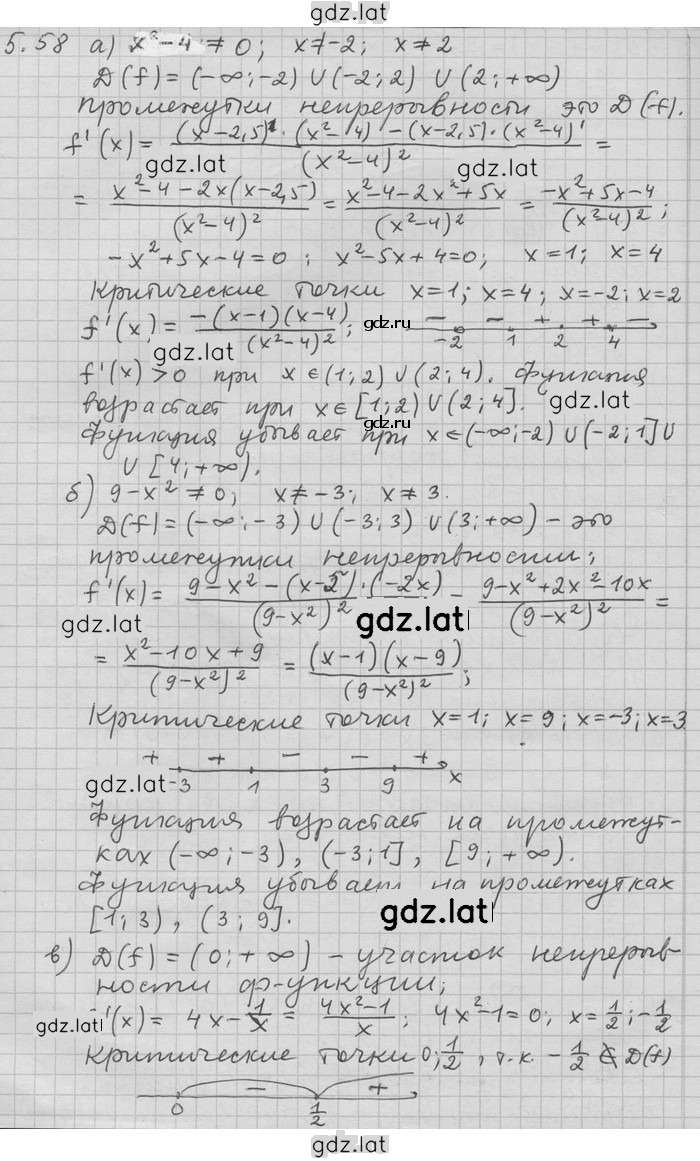 gdz.lat
5.58 а) x² - 4 ≠ 0; x ≠ -2; x ≠ 2
D(f) = (-∞; -2) ∪ (-2; 2) ∪ (2; +∞)
промежутки непрерывности это D(f).
f'(x) = ((x - 2,5)' · (x² - 4) - (x - 2,5) · (x² - 4)') / (x² - 4)² =
gdz.lat gdz.lat
= (x² - 4 - 2x(x - 2,5)) / (x² - 4)² = (x² - 4 - 2x² + 5x) / (x² - 4)² = (-x² + 5x - 4) / (x² - 4)²;
-x² + 5x - 4 = 0; x² - 5x + 4 = 0; x = 1; x = 4
Критические точки x = 1; x = 4; x = -2; x = 2
f'(x) = -(x - 1)(x - 4) / (x² - 4)²; gdz.ru - - + + -
gdz.lat -2 1 2 4
f'(x) > 0 при x ∈ (1; 2) ∪ (2; 4). Функция
возрастает при x ∈ [1; 2) ∪ (2; 4]. gdz.lat
gdz.lat
Функция убывает при x ∈ (-∞; -2) ∪ (-2; 1] ∪
∪ [4; +∞).
б) 9 - x² ≠ 0; x ≠ -3; x ≠ 3.
D(f) = (-∞; -3) ∪ (-3; 3) ∪ (3; +∞) - это
промежутки непрерывности;
f'(x) = (9 - x² - (x - 5) · (-2x)) / (9 - x²)² = (9 - x² + 2x² - 10x) / (9 - x²)² =
gdz.lat gdz.lat
= (x² - 10x + 9) / (9 - x²)² = (x - 1)(x - 9) / (9 - x²)²;
Критические точки x = 1; x = 9; x = -3; x = 3
+ + - - +
gdz.lat -3 1 3 9 x
Функция возрастает на промежут-
ках (-∞; -3), (-3; 1], [9; +∞).
Функция убывает на промежутках
[1; 3), (3; 9]. gdz.lat
в) D(f) = (0; +∞) - участок непрерыв
ности ф-ункции;
gdz.lat '(x) = 4x - 1/x = (4x² - 1)/x; 4x² - 1 = 0; x = 1/2; -1/2
Критические точки 0; 1/2, т.к. -1/2 ∉ D(f)
- +
0 1/2
gdz.lat
gdz.lat